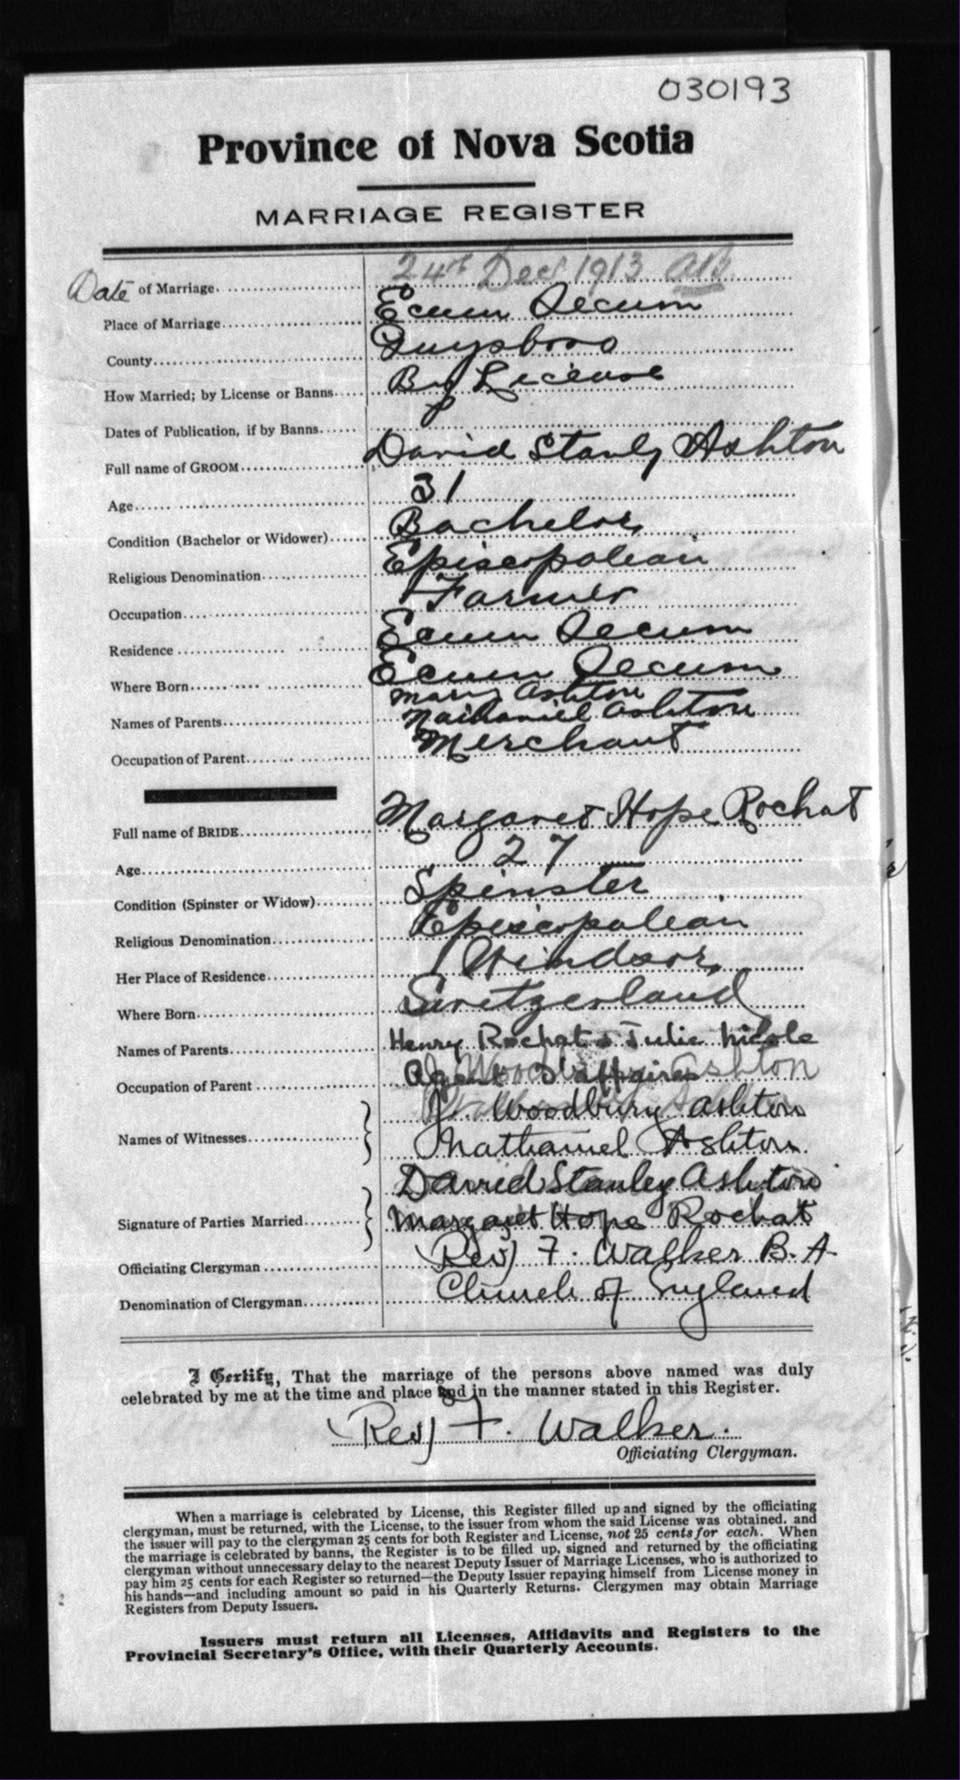 030193
Province of Nova Scotia
MARRIAGE REGISTER
Date of Marriage 24th Decr 1913
Place of Marriage Ecum Secum
County Guysboro
How Married; by License or Banns By License
Dates of Publication, if by Banns
Full name of GROOM David Stanly Ashton
Age 31
Condition (Bachelor or Widower) Bachelor
Religious Denomination Episcopalean
Occupation Farmer
Residence Ecum Secum
Where Born Ecum Secum
Mary Ashton
Names of Parents Nathaniel Ashton
Occupation of Parent Merchant
Full name of BRIDE Margaret Hope Rochat
Age 27
Condition (Spinster or Widow) Spinster
Religious Denomination Episcopalean
Her Place of Residence Windsor
Where Born Switzerland
Names of Parents Henry Rochat & Julie Nicole
Occupation of Parent Agent d'affaires
J. Woodbury Ashton
Names of Witnesses Nathaniel Ashton
David Stanley Ashton
Signature of Parties Married Margaret Hope Rochat
Officiating Clergyman (Rev) F. Walker B.A.
Denomination of Clergyman Church of England
I Certify, That the marriage of the persons above named was duly
celebrated by me at the time and place and in the manner stated in this Register.
(Rev) F. Walker.
Officiating Clergyman.
When a marriage is celebrated by License, this Register filled up and signed by the officiating
clergyman, must be returned, with the License, to the issuer from whom the said License was obtained. and
the issuer will pay to the clergyman 25 cents for both Register and License, not 25 cents for each. When
the marriage is celebrated by banns, the Register is to be filled up, signed and returned by the officiating
clergyman without unnecessary delay to the nearest Deputy Issuer of Marriage Licenses, who is authorized to
pay him 25 cents for each Register so returned—the Deputy Issuer repaying himself from License money in
his hands—and including amount so paid in his Quarterly Returns. Clergymen may obtain Marriage
Registers from Deputy Issuers.
Issuers must return all Licenses, Affidavits and Registers to the
Provincial Secretary's Office, with their Quarterly Accounts.